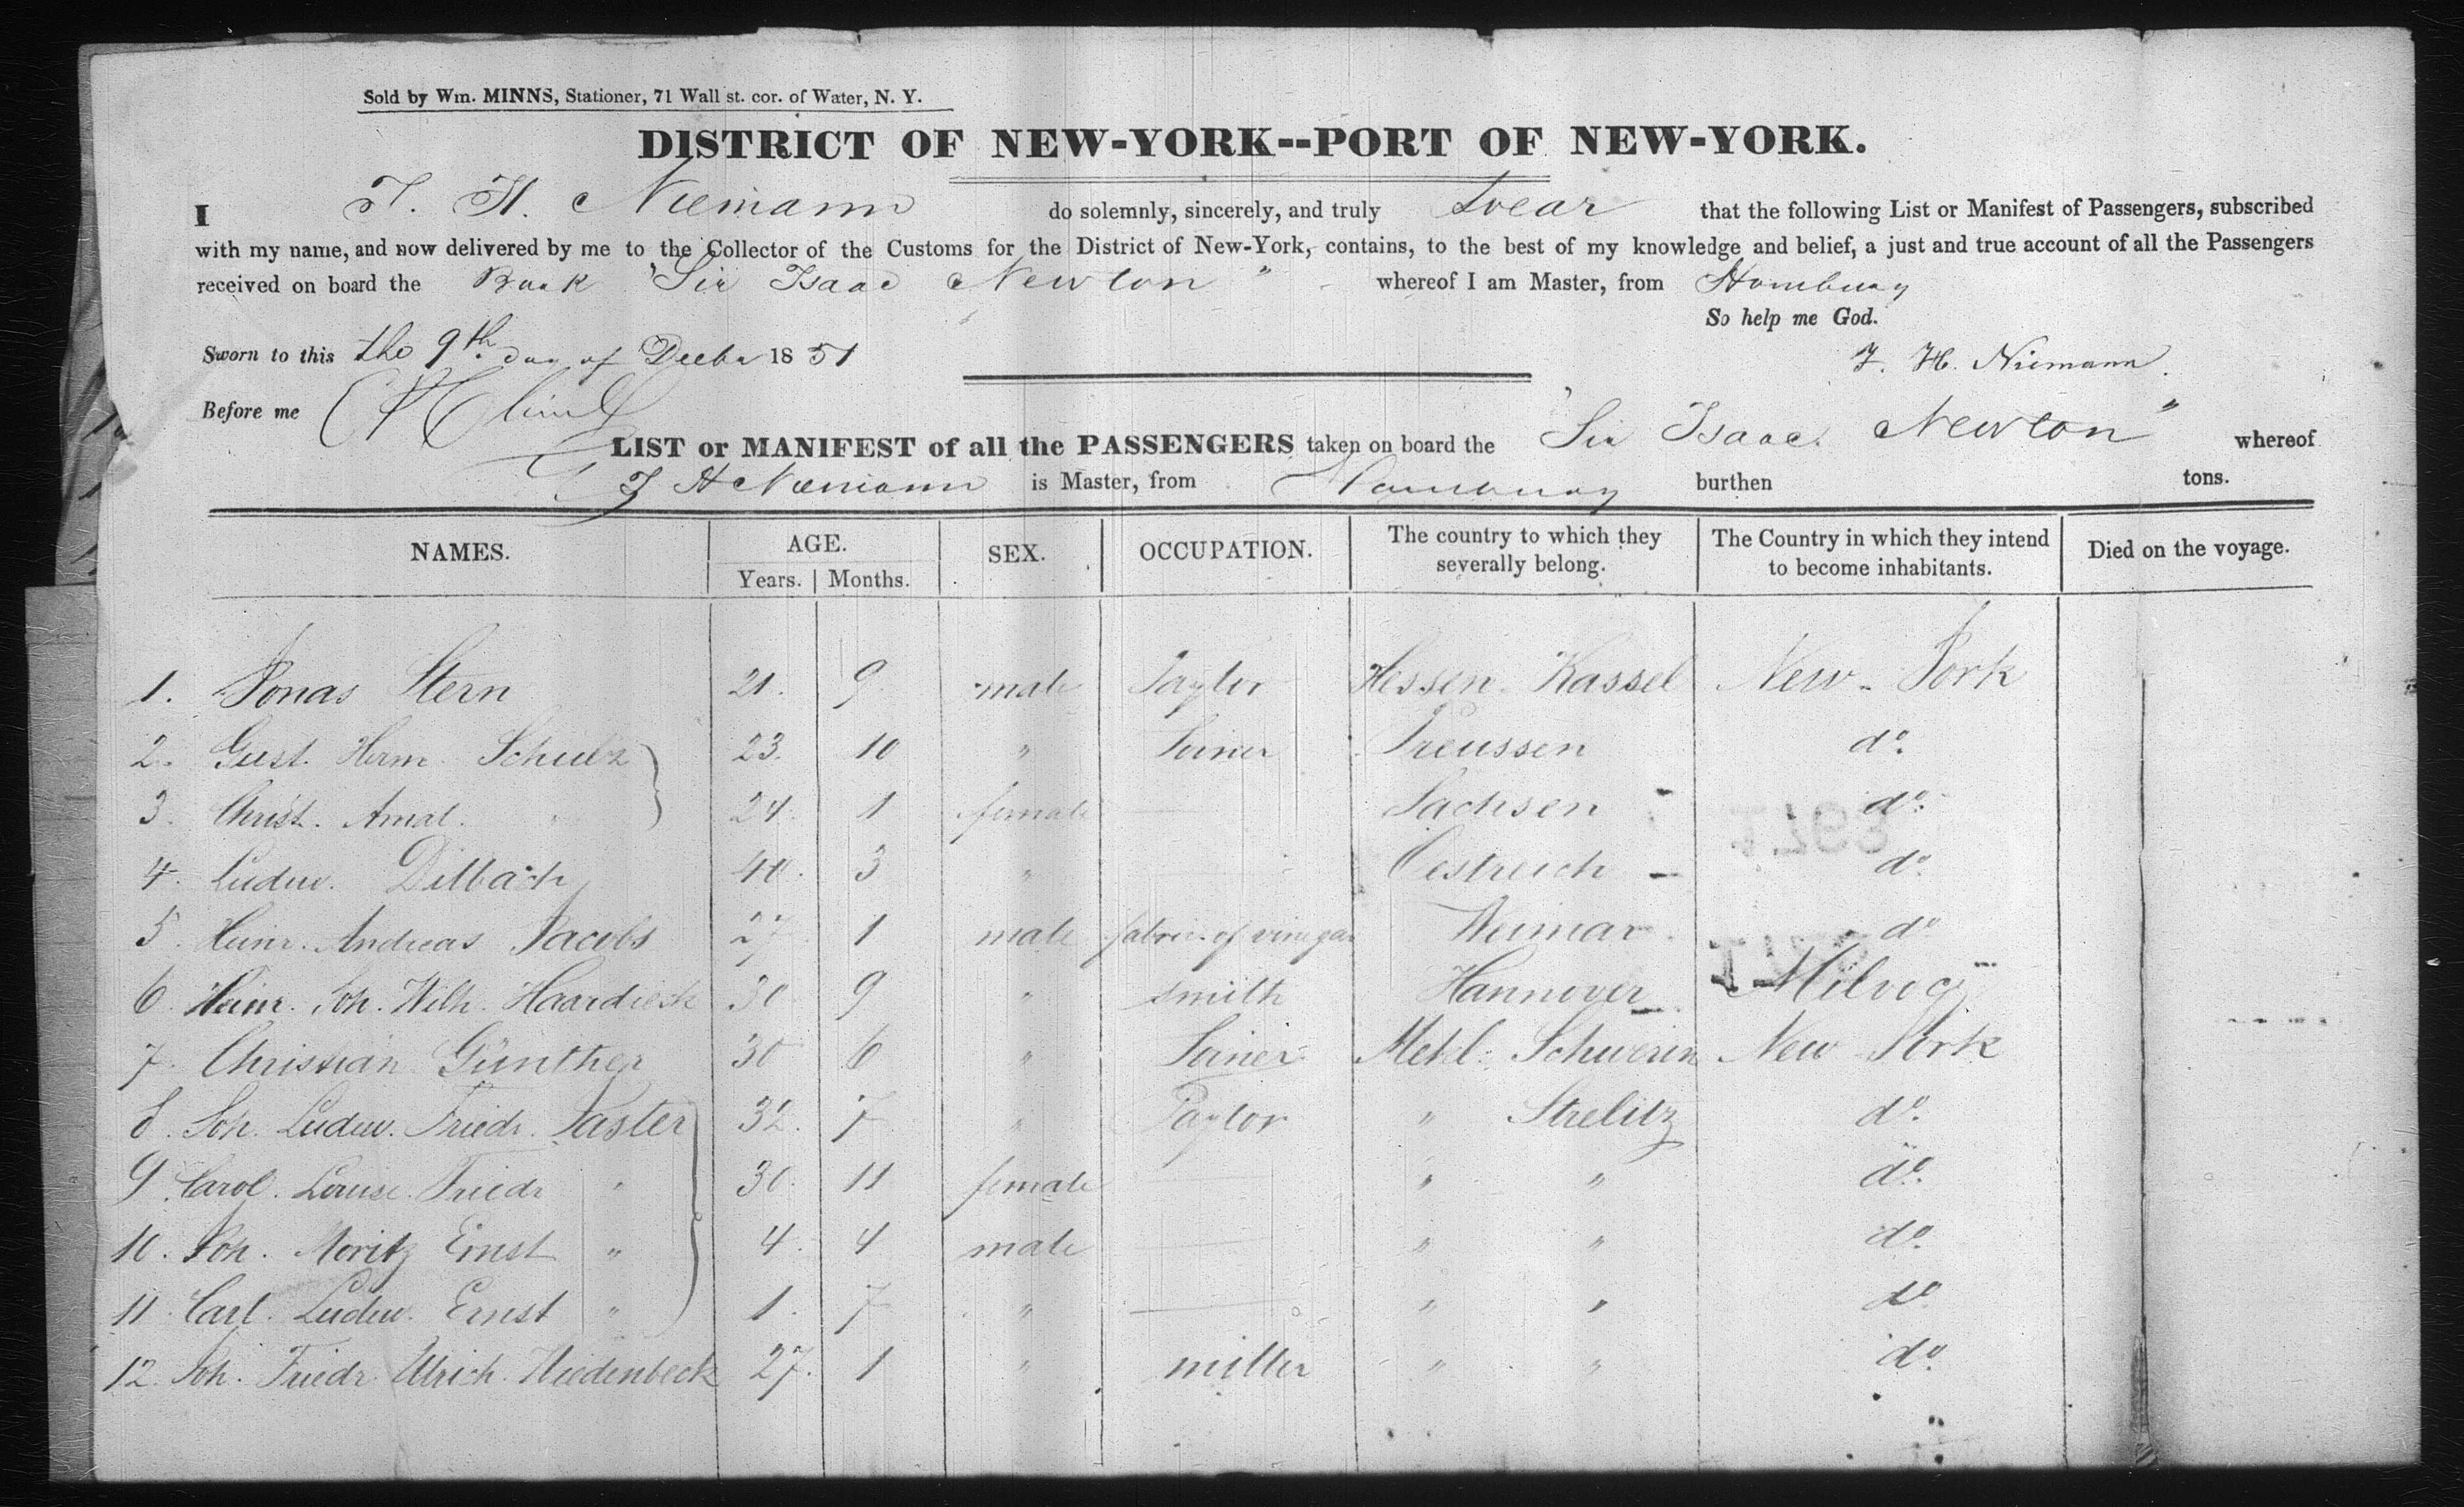 Sold by Wm. MINNS, Stationer, 71 Wall st. cor. of Water, N. Y.
DISTRICT OF NEW-YORK--PORT OF NEW-YORK.
I F. H. Niemann do solemnly, sincerely, and truly swear that the following List or Manifest of Passengers, subscribed
with my name, and now delivered by me to the Collector of the Customs for the District of New-York, contains, to the best of my knowledge and belief, a just and true account of all the Passengers
received on board the Bark "Sir Isaac Newton" whereof I am Master, from Hamburg
So help me God.
Sworn to this the 9th day of Decbr 1851 F. H. Niemann.
Before me
LIST or MANIFEST of all the PASSENGERS taken on board the "Sir Isaac Newton" whereof
F H Niemann is Master, from Hamburg burthen tons.
NAMES. AGE. Years. Months. SEX. OCCUPATION. The country to which they severally belong. The Country in which they intend to become inhabitants. Died on the voyage.
1. Jonas Stern 21. 9 male Taylor Hessen-Kassel New-York
2. Gust. Herm. Schulz 23. 10 " Joiner Preussen do.
3. Christ. Amal. " 24. 1 female — Sachsen do.
4. Ludw. Dilbach 40. 3 " Oestreich do.
5. Heinr. Andreas Jacobs 27. 1 male fabric. of vinegar Weimar do
6. Heinr. Joh. Wilh. Haardieck 30 9 " smith Hannover
7. Christian Günther 30 6 " Joiner Mekl. Schwerin New York
8. Joh. Ludw. Friedr. Paster 32. 7 " Taylor " Strelitz do.
9. Carol. Louise Friedr " 30. 11 female — " " do.
10. Joh. Moritz Ernst " 4. 4 male — " " do.
11. Carl. Ludw. Ernst " 1. 7 " — " " do
12. Joh. Friedr. Ulrich. Wiedenbeck 27. 1 " miller " " do.